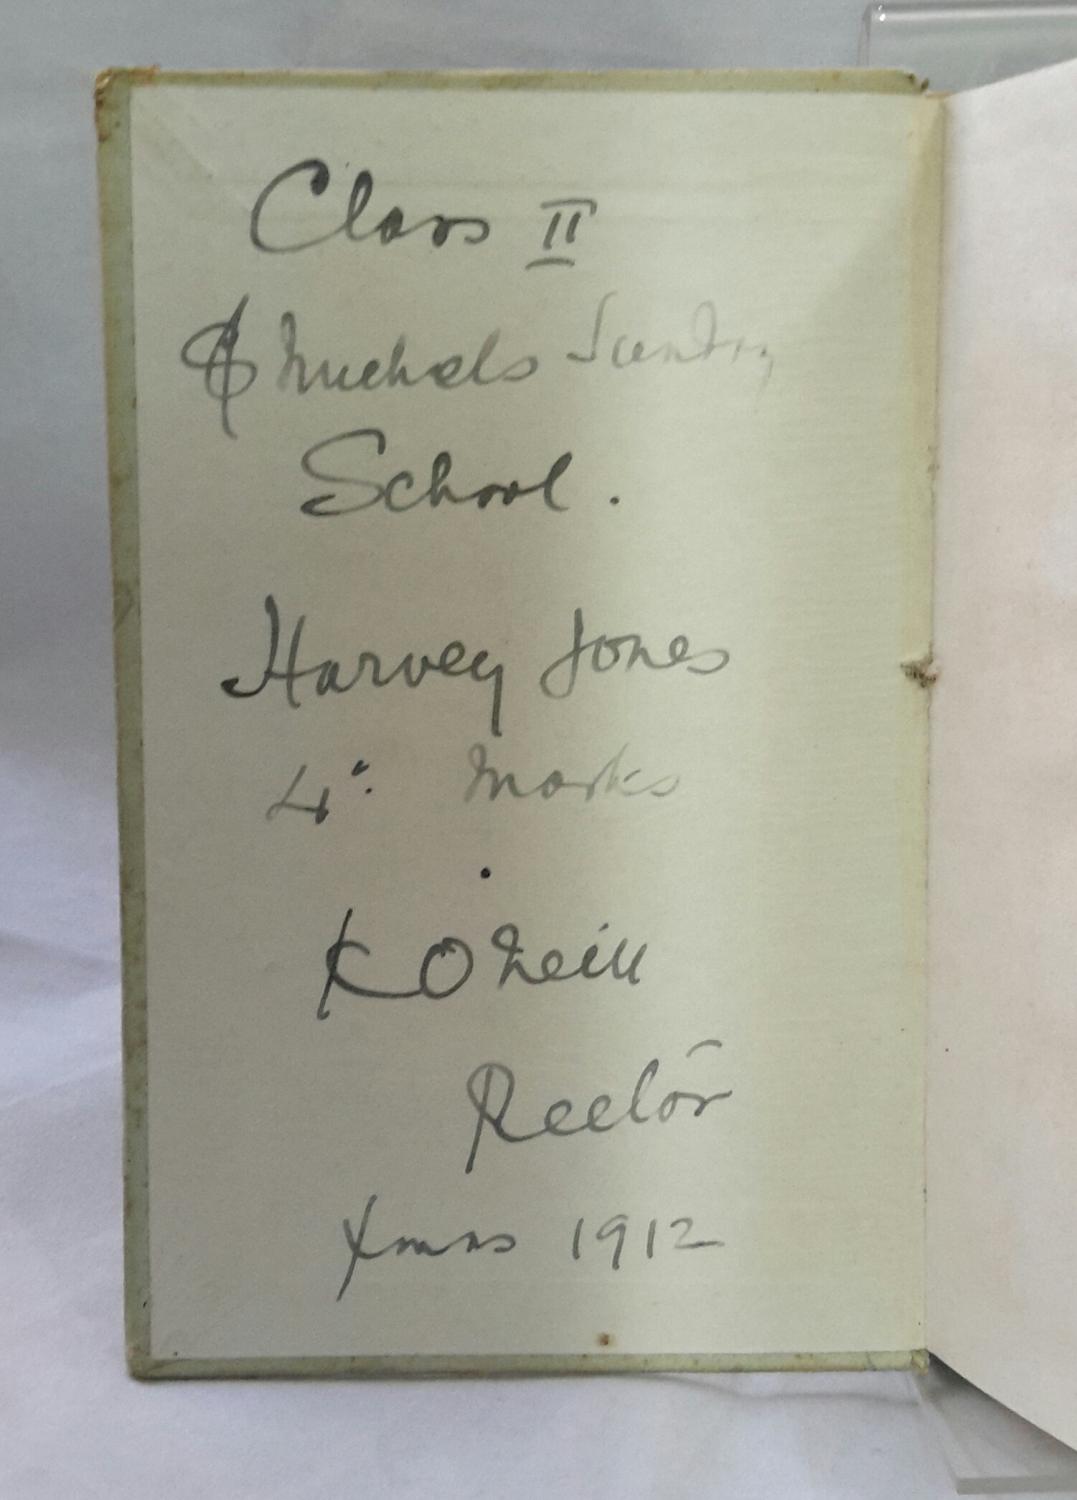 Class II
St Michaels Sunday
School.
Harvey Jones
Marks
K O Neill
Rector
Xmas 1912